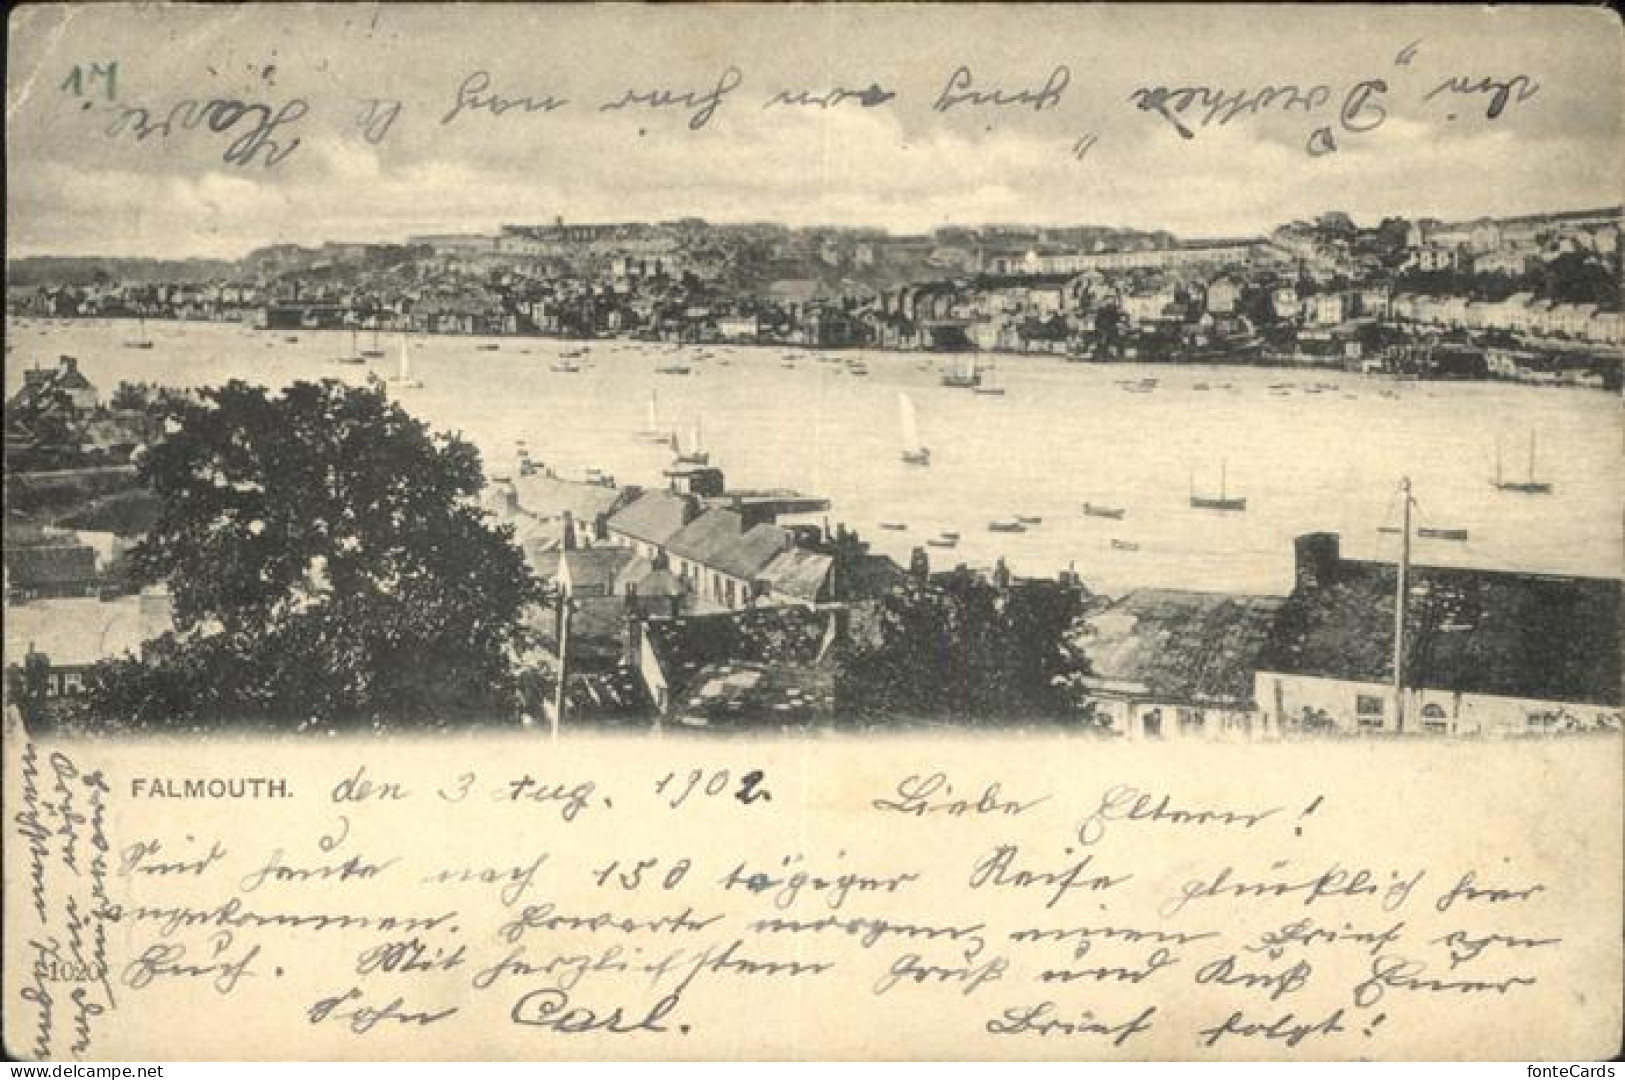 17
Die „Dorothea“ geht von hier nach le Havre
FALMOUTH. den 3 Aug. 1902.
Liebe Eltern!
Sind heute nach 150 tägiger Reise glücklich hier
angekommen. Erwarte morgen einen Brief von
Euch. Mit herzlichstem Gruß und Kuß Euer
Sohn Carl. Brief folgt!
1020
fonteCards